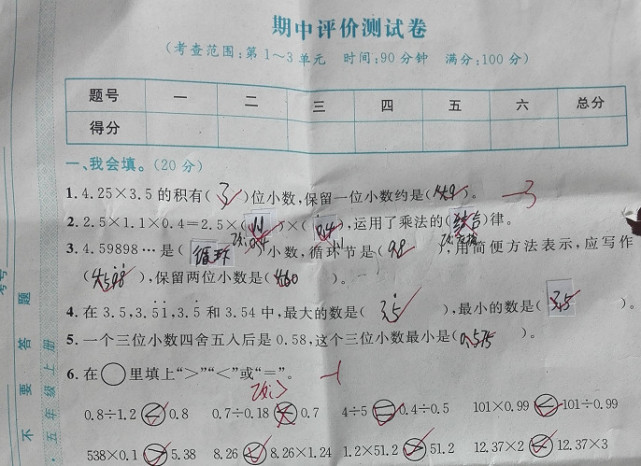 期中评价测试卷
(考查范围:第1～3单元 时间:90分钟 满分:100分)
题号 一 二 三 四 五 六 总分
得分
一、我会填。(20分)
1. 4.25×3.5的积有( 3 )位小数,保留一位小数约是(14.9)。
2. 2.5×1.1×0.4=2.5×( 1.1 )×( 0.4 ),运用了乘法的(结合)律。
3. 4.59898…是( 循环 )小数,循环节是( 98 ),用简便方法表示,应写作
(4.59̇8̇),保留两位小数是(4.60)。
4. 在3.5,3.5̇1̇,3.5̇和3.54中,最大的数是( 3.5̇ ),最小的数是( 3.5 )。
5. 一个三位小数四舍五入后是0.58,这个三位小数最小是(0.575)
6. 在○里填上“>”“<”或“=”。
0.8÷1.2 < 0.8 0.7÷0.18 0.7 4÷5 = 0.4÷0.5 101×0.99 101÷0.99
538×0.1 > 5.38 8.26 8.26×1.24 1.2×51.2 > 51.2 12.37×2 < 12.37×3
不要答题
五年级上册